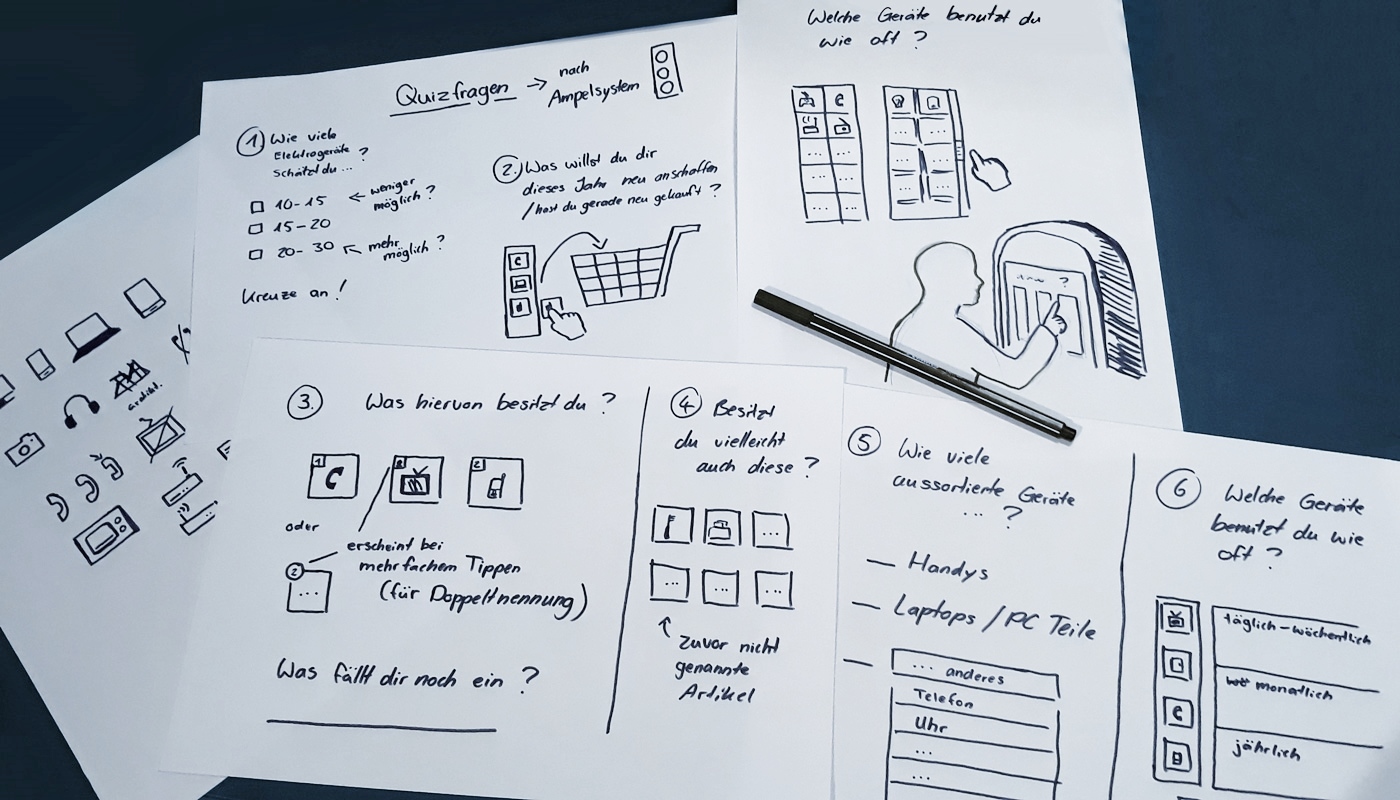 Quizfragen → nach
Ampelsystem
1) Wie viele
Elektrogeräte
Schätzt du ... ?
10-15 ← weniger
möglich ?
15-20
20-30 ← mehr
möglich ?
Kreuze an !
2. Was willst du dir
dieses Jahr neu anschaffen
/ hast du gerade neu gekauft ?
Welche Geräte benutzt du
wie oft ?
3. Was hiervon besitzt du ?
oder
2
...
erscheint bei
mehrfachem Tippen
(für Doppeltnennung)
Was fällt dir noch ein ?
4. Besitzt
du vielleicht
auch diese ?
...
... ... ...
Zuvor nicht
genannte
Artikel
5 Wie viele
aussortierte Geräte
... ?
— Handys
— Laptops / PC Teile
— ... anderes
Telefon
Uhr
...
...
6 Welche Geräte
benutzt du wie
oft ?
täglich-wöchentlich
monatlich
jährlich